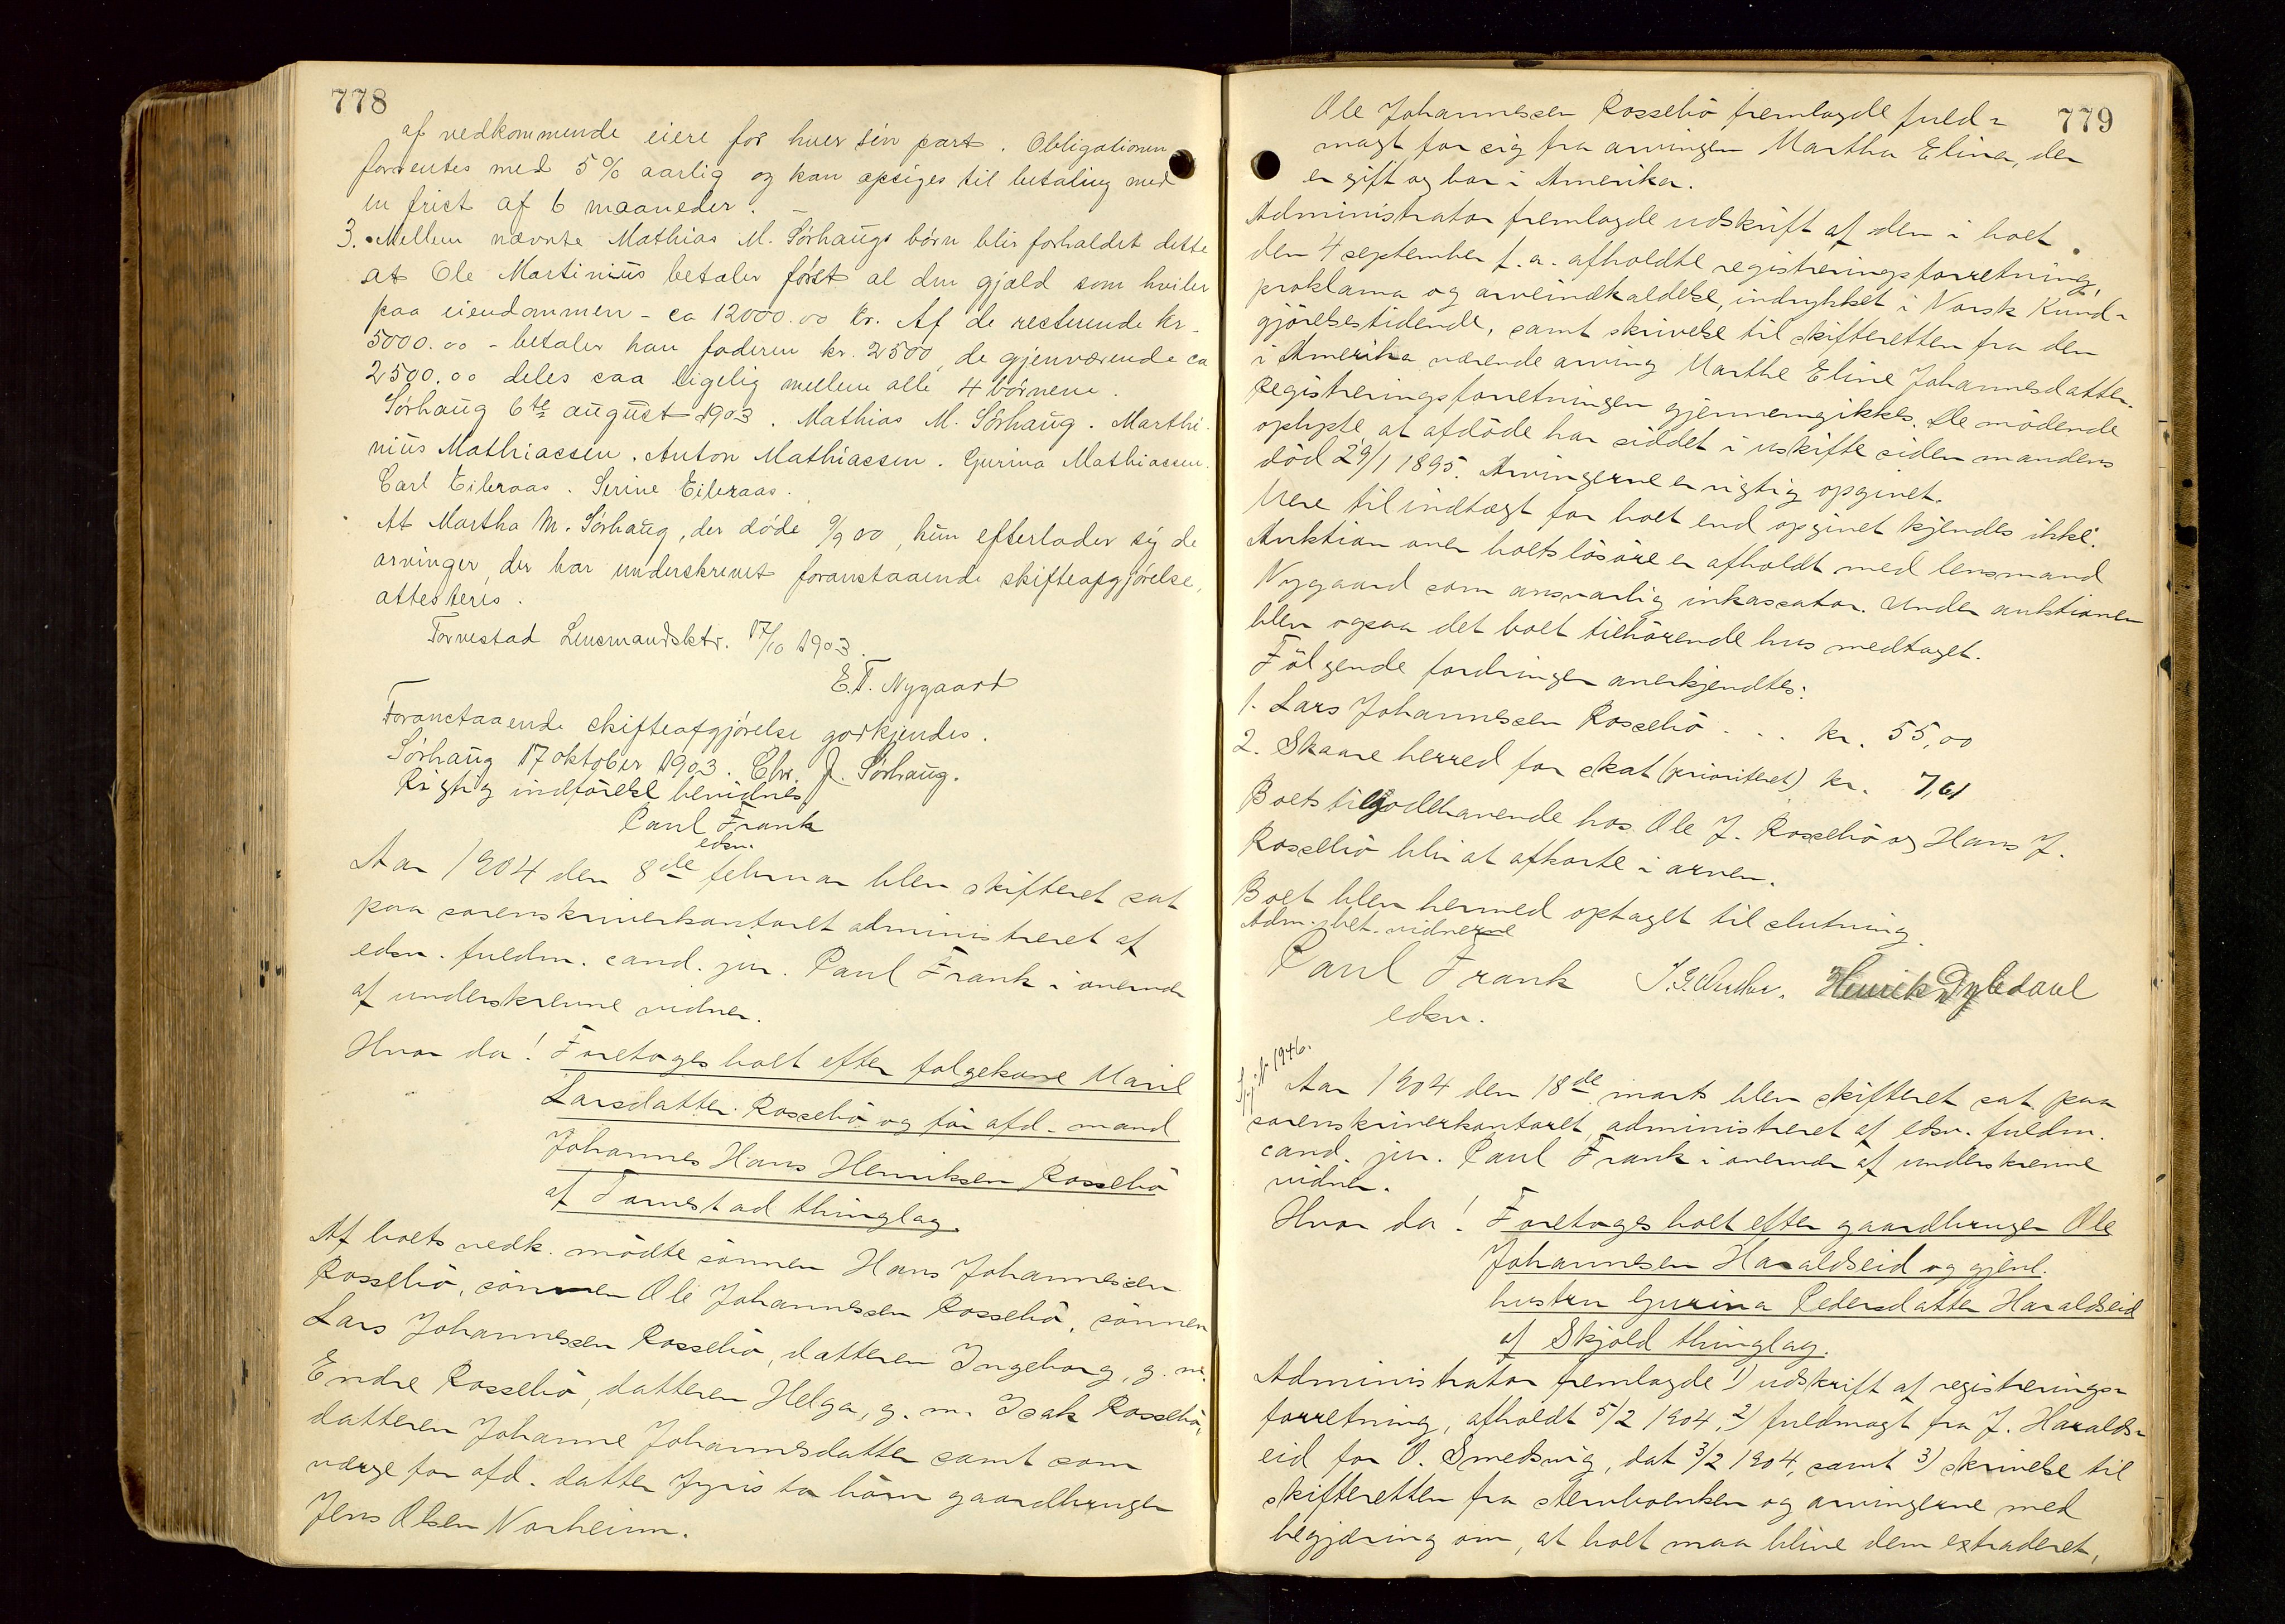 778
af vedkommende eiere for hver sin part. Obligationen
forrentes med 5% aarlig og kan opsiges til betaling med
en frist af 6 maaneder. –
3. Mellem nævnte Mathias M. Sörhaugs börn blir forholdet dette
at Ole Martinius betaler först al den gjæld som hviler
paa eiendommen – ca 12000.00 kr. Af de resterende kr.
5000.00 – betaler han faderen kr. 2500, de gjenværende ca
2500.00 deles saa ligelig mellem alle 4 börnene.
Sörhaug 6te august 1903. Mathias M. Sörhaug. Marthi-
nius Mathiassen. Anton Mathiassen. Gurina Mathiassen.
Carl Eikeraas. Serine Eikeraas.
At Martha M. Sörhaug, der döde 9/9 00, hun efterlader sig de
arvinger, der har underskrevet foranstaaende skifteafgjörelse,
attesteres.
Torvestad Lensmandsktr. 17/10 1903.
E.T. Nygaard
Foranstaaende skifteafgjörelse godkjendes.
Sörhaug 17 oktober 1903. Chr. J. Sörhaug.
Rigtig indförelse bevidnes
Paul Frank
edsv.
Aar 1904 den 8de februar blev skifteret sat
paa sorenskriverkontoret administreret af
edsv. fuldm. cand. jur. Paul Frank i overvær
af underskrevne vidner.
Hvor da! Foretoges boet efter folgekone Maril
Larsdatter Rossebö og för afd. mand
Johannes Hans Henriksen Rossebö
af Torvestad thinglag.
Af boets vedk. mödte sönnen Hans Johannessen
Rossebö, sönnen Ole Johannessen Rossebö, sönnen
Lars Johannessen Rossebö, datteren Ingeborg, g. m.
Endre Rossebö, datteren Helga, g. m. Isak Rossebö,
datteren Johanne Johannesdatter samt som
værge for afd. datter börn gaardbruger
Jens Olsen Norheim.
779
Ole Johannessen Rossebö fremlagde fuld-
magt for sig fra arvingen Martha Elina, der
er gift og bor i Amerika.
Administrator fremlagde udskrift af den i boet
den 4 september f. a. afholdte registreringsforretning,
proklama og arveindkaldelse, indrykket i Norsk Kund-
gjörelsestidende, samt skrivelse til skifteretten fra den
i Amerika værende arving Marthe Eline Johannesdatter.
Registreringsforretningen gjennemgikkes. De mödende
oplyste, at afdöde har siddet i uskifte siden mandens
död 29/1 1895. Arvingerne er rigtig opgivet.
Mere til indtægt for boet end opgivet kjendes ikke.
Auktion over boets lösöre er afholdt med lensmand
Nygaard som ansvarlig inkassator. Under auktionen
blev ogsaa det boet tilhörende hus medtaget.
Fölgende fordringer anerkjendtes:
1. Lars Johannessen Rossebö . . . kr. 55,00
2. Skaare herred for skat (prioriteret) kr. 7,61
Boets tilgodehavende hos Ole J. Rossebö og Hans J.
Rossebö blir at afkorte i arven.
Boet blev hermed optaget til slutning.
Adm. bet. vidnerne
Paul Frank Henrik Dybdahl
edsv.
N 1946.
Aar 1904 den 18de marts blev skifteret sat paa
sorenskriverkontoret, administreret af edsv. fuldm.
cand. jur. Paul Frank i overvær af underskrevne
vidner.
Hvor da! Foretoges boet efter gaardbruger Ole
Johannesen Haraldseid og gjenl.
hustru Gurina Pedersdatter Haraldseid
af Skjold thinglag.
Administrator fremlagde 1) udskrift af registrerings-
forretning, afholdt 5/2 1904, 2) fuldmagt fra J. Haralds-
eid for O. Smedsvig, dat 3/2 1904, samt 3) skrivelse til
skifteretten fra sterbœnken og arvingerne med
begjæring om, at boet maa blive dem extraderet,